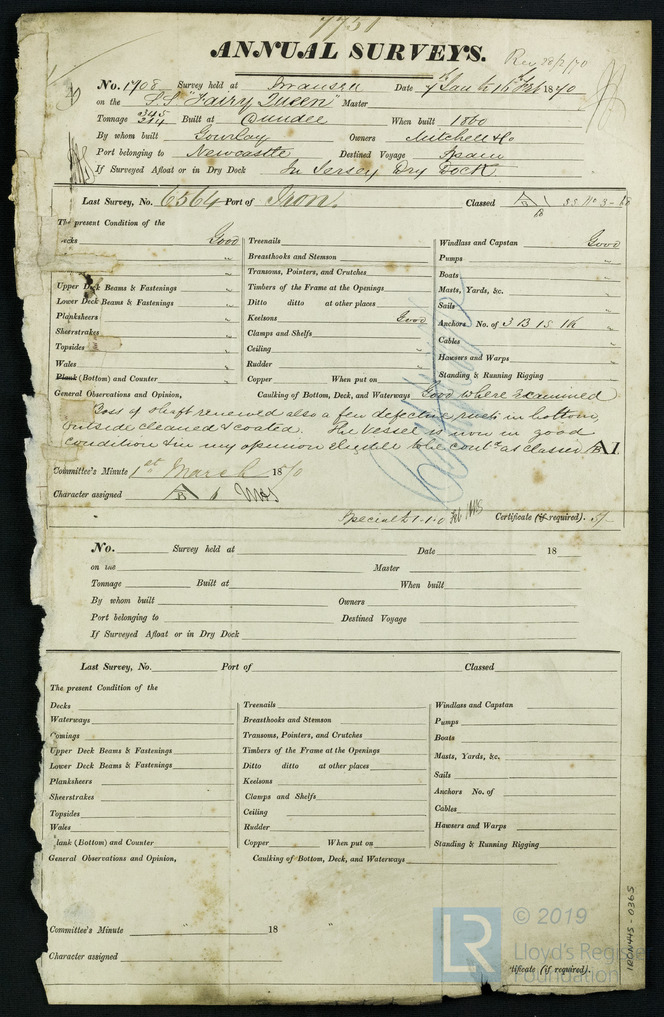 7751
ANNUAL SURVEYS.
Rec 28/2/70
No. 1908 Survey held at Swansea Date 7 Jan to 16 Feb 1870
on the S.S. "Fairy Queen" Master
Tonnage 345 214 Built at Dundee When built 1860
By whom built Gourlay Owners Mitchell & Co
Port belonging to Newcastle Destined Voyage Spain
If Surveyed Afloat or in Dry Dock In Jersey Dry Dock
Last Survey, No. 6564 Port of Iron. Classed A 1
The present Condition of the
Decks Good
Upper Deck Beams & Fastenings "
Lower Deck Beams & Fastenings "
Planksheers "
Sheerstrakes "
Topsides "
Wales "
Plank (Bottom) and Counter "
Treenails
Breasthooks and Stemson
Transoms, Pointers, and Crutches
Timbers of the Frame at the Openings
Ditto ditto at other places
Keelsons Good
Clamps and Shelfs
Ceiling "
Rudder "
Copper When put on
Windlass and Capstan Good
Pumps "
Boats "
Masts, Yards, &c. "
Sails "
Anchors No. of 3 B 1 S 1 K "
Cables "
Hawsers and Warps "
Standing & Running Rigging "
General Observations and Opinion, Caulking of Bottom, Deck, and Waterways Good where examined
Boss of shaft renewed also a few defective rivets in bottom,
outside cleaned & coated. The Vessel is now in good
condition & in my opinion eligible to be cont'd as classed A1
Committee's Minute 1st March 1870
Character assigned A
Special £1-1-0 Certificate (if required). 5/-
No. Survey held at Date 18
on the Master
Tonnage Built at When built
By whom built Owners
Port belonging to Destined Voyage
If Surveyed Afloat or in Dry Dock
Last Survey, No. Port of Classed
The present Condition of the
Decks
Waterways
Comings
Upper Deck Beams & Fastenings
Lower Deck Beams & Fastenings
Planksheers
Sheerstrakes
Topsides
Wales
lank (Bottom) and Counter
Treenails
Breasthooks and Stemson
Transoms, Pointers, and Crutches
Timbers of the Frame at the Openings
Ditto ditto at other places
Keelsons
Clamps and Shelfs
Ceiling
Rudder
Copper When put on
Windlass and Capstan
Pumps
Boats
Masts, Yards, &c,
Sails
Anchors No. of
Cables
Hawsers and Warps
Standing & Running Rigging
General Observations and Opinion, Caulking of Bottom, Deck, and Waterways
Committee's Minute 18
Character assigned
rtificate (if required).
LR © 2019
Lloyd's Register
Foundation
IRON445-0365